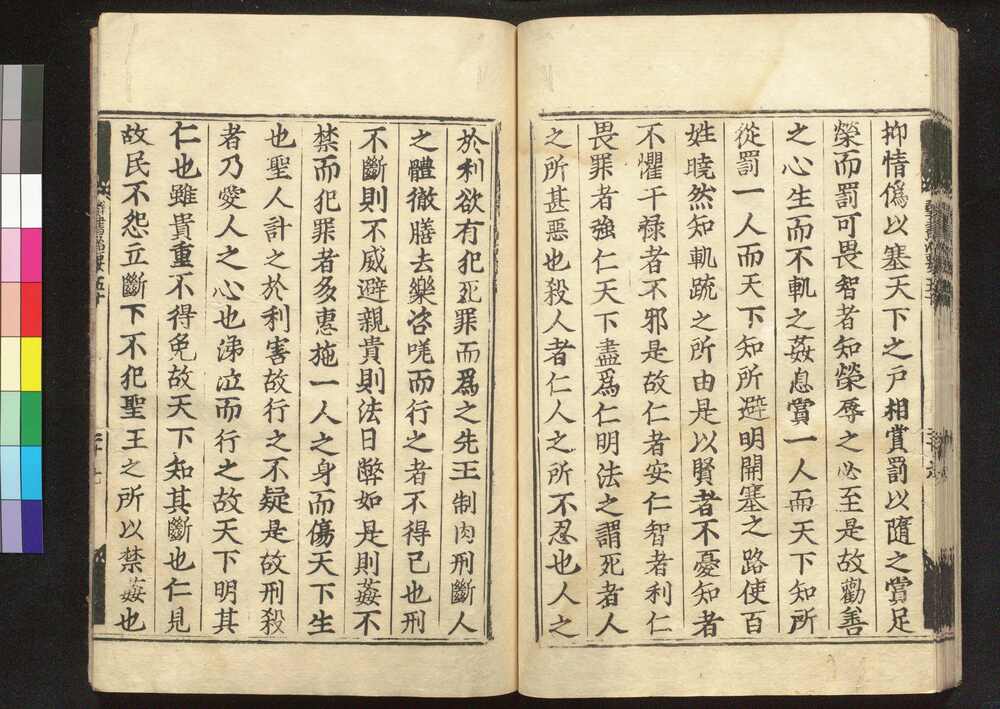 抑情僞以塞天下之戸相賞罰以隨之賞足
榮而罰可畏智者知榮辱之必至是故勸善
之心生而不軌之姦息賞一人而天下知所
從罰一人而天下知所避明開塞之路使百
姓曉然知軌䟽之所由是以賢者不憂知者
不懼干禄者不邪是故仁者安仁智者利仁
畏罪者強仁天下盡爲仁明法之謂死者人
之所甚惡也殺人者仁人之所不忍也人之
於利欲有犯死罪而爲之先王制肉刑斷人
之體徹膳去樂咨嗟而行之者不得已也刑
不斷則不威避親貴則法日弊如是則姦不
禁而犯罪者多惠施一人之身而傷天下生
也聖人計之於利害故行之不疑是故刑殺
者乃愛人之心也涕泣而行之故天下明其
仁也雖貴重不得免故天下知其斷也仁見
故民不怨立斷下不犯聖王之所以禁姦也
羣書治要五十